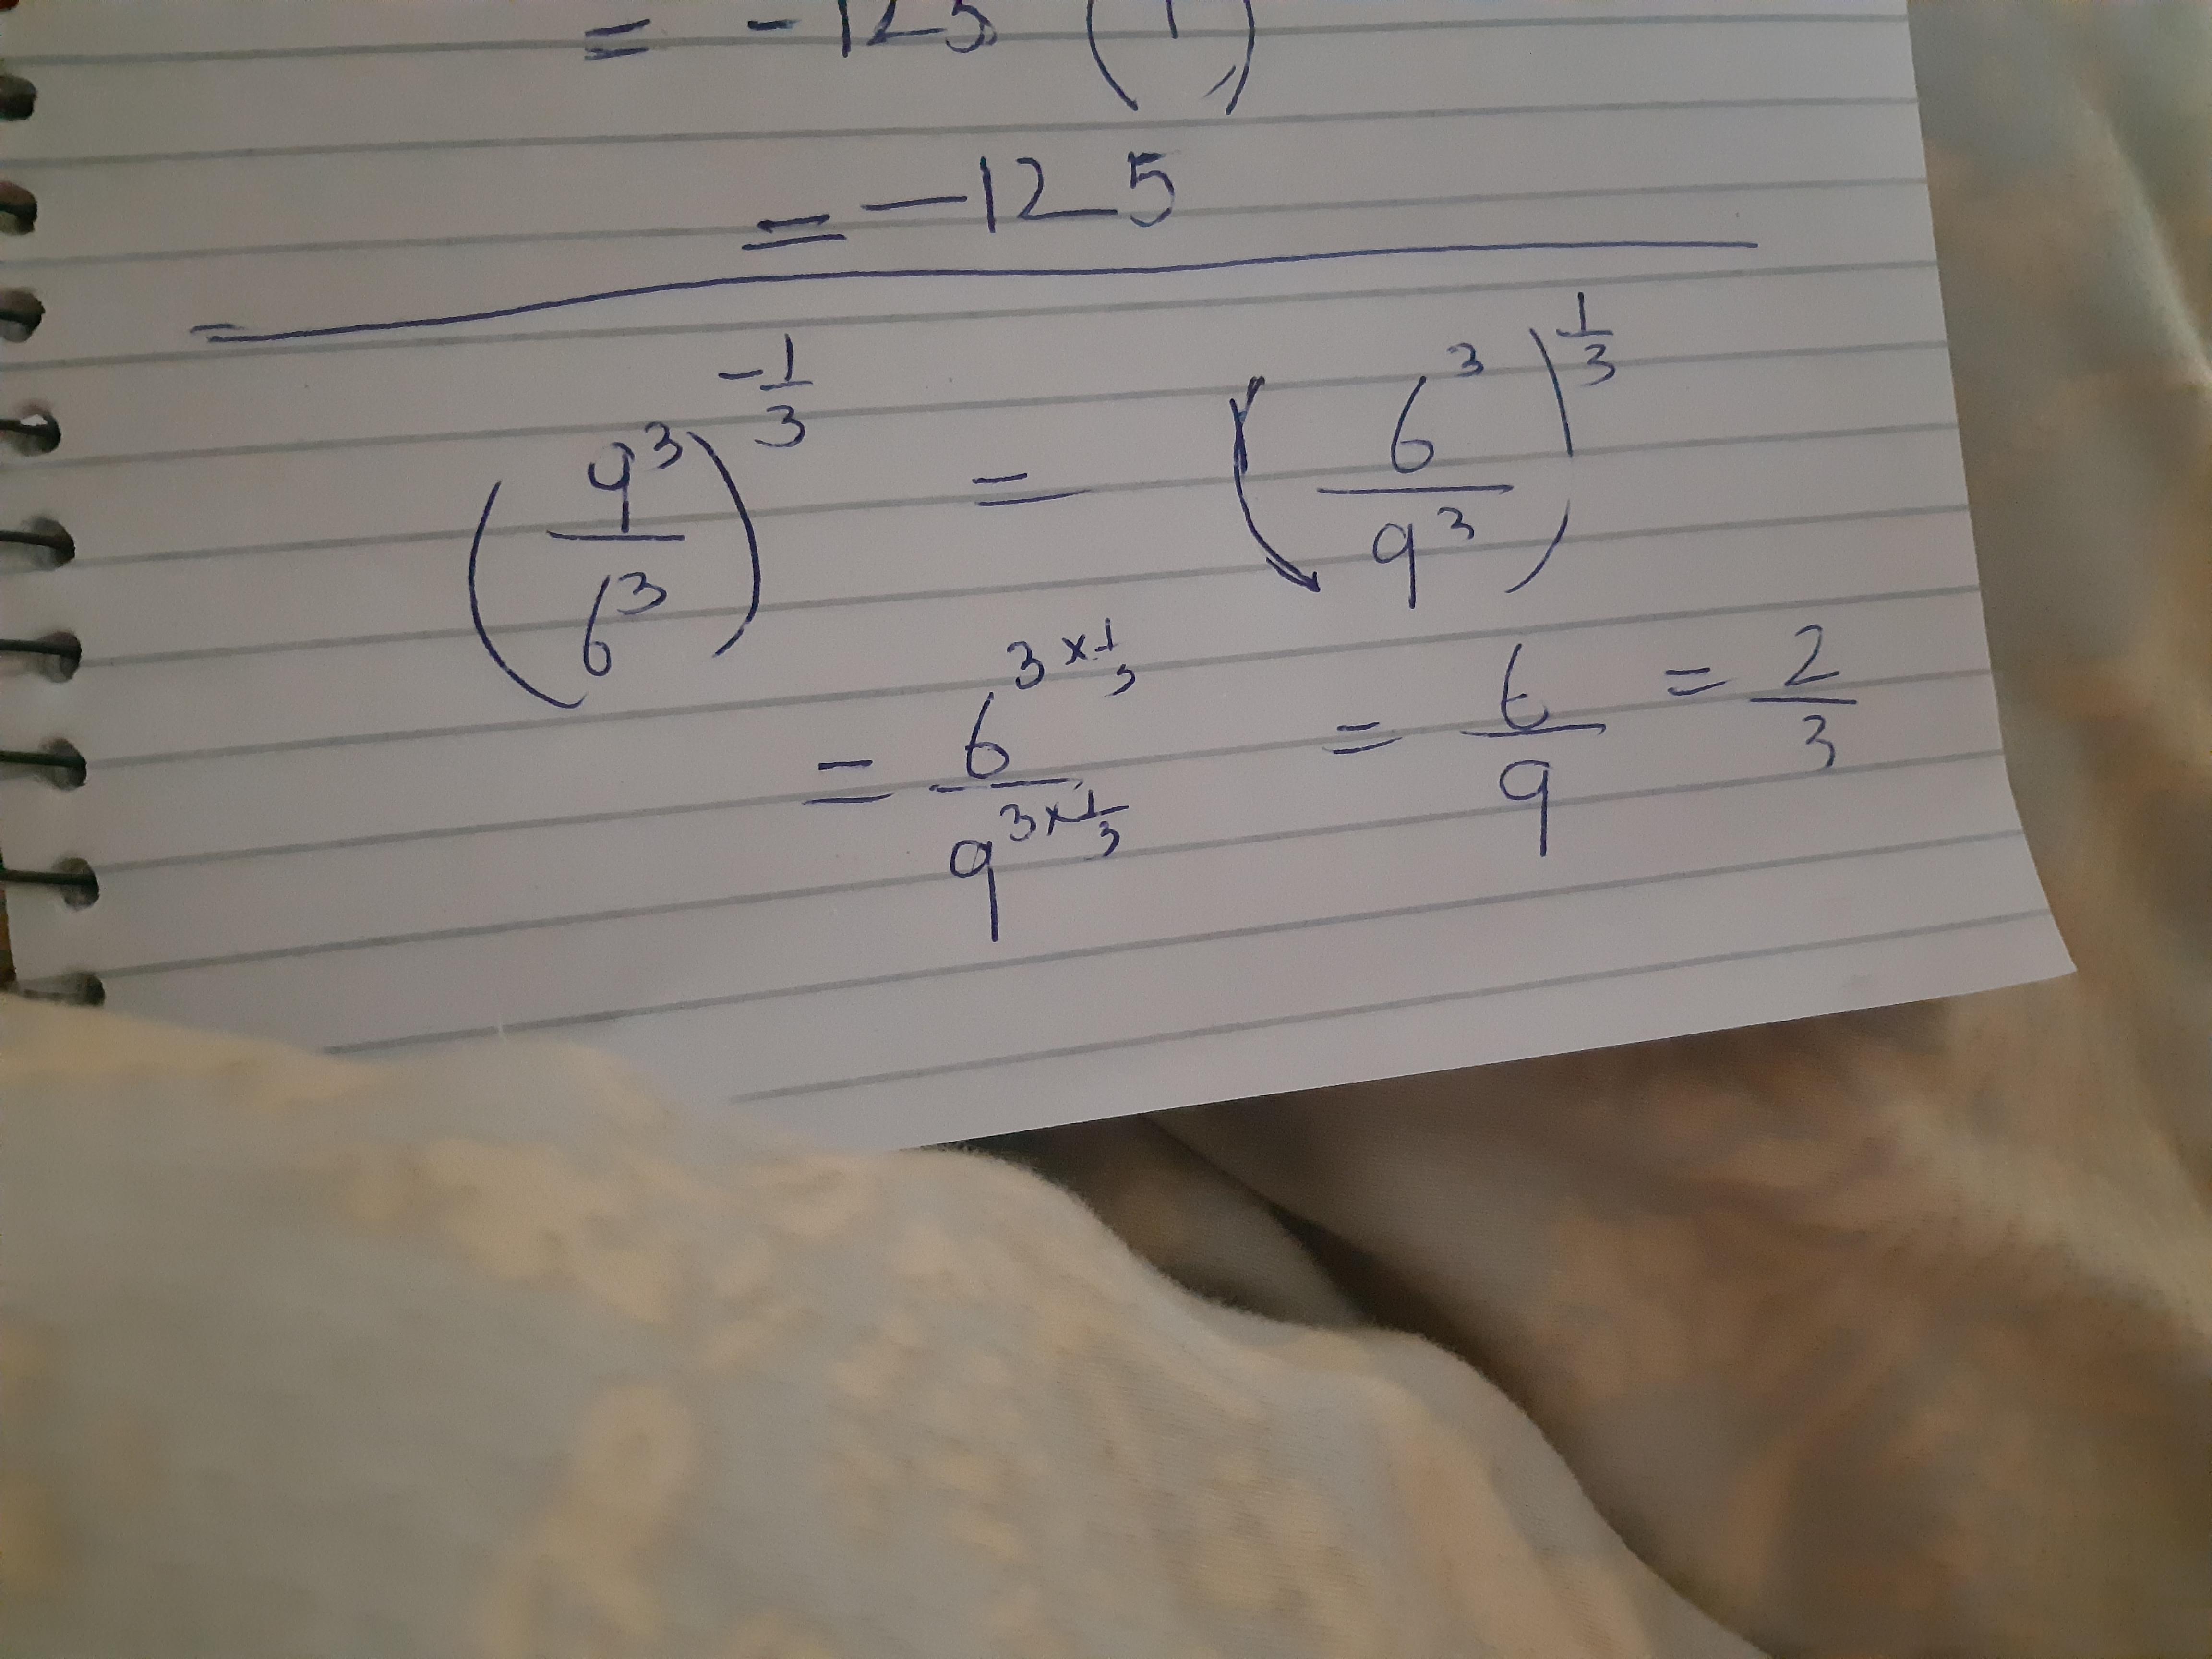 = -125 (1)
= -125
(9³/6³)^(-1/3) = (6³/9³)^(1/3)
= 6^(3×1/3)/9^(3×1/3) = 6/9 = 2/3